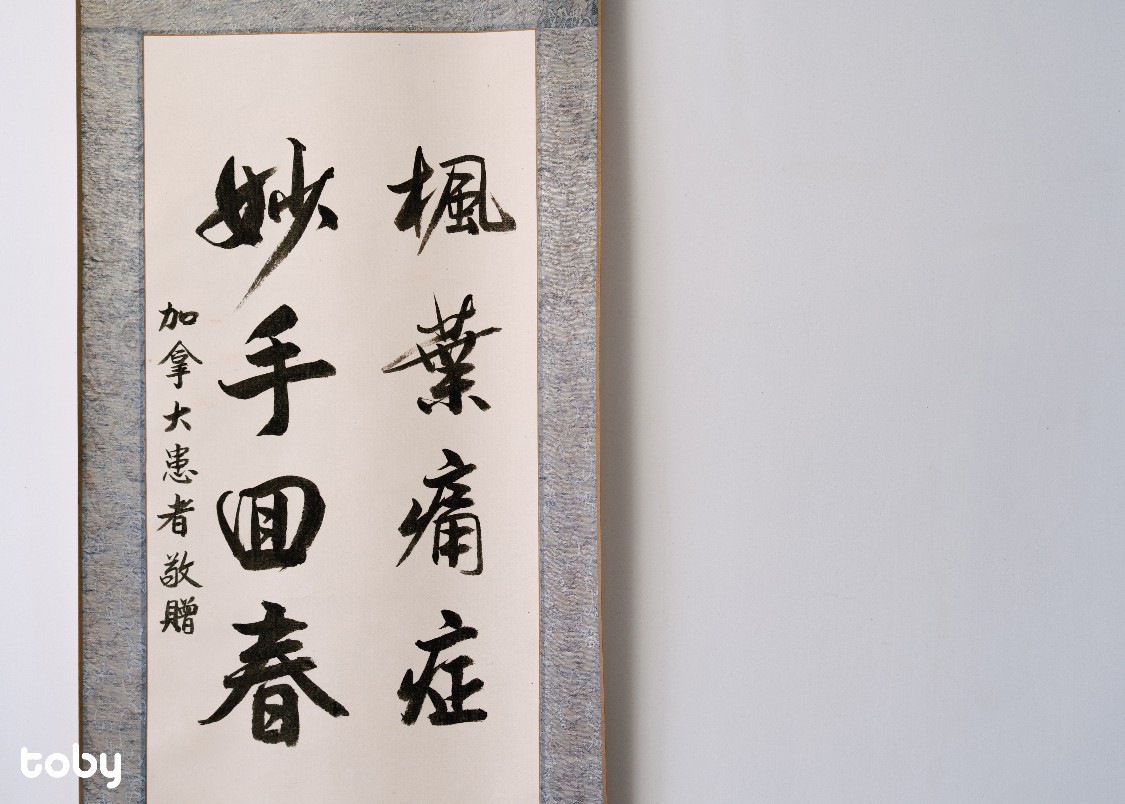 楓葉痛症
妙手回春
加拿大患者敬贈
toby